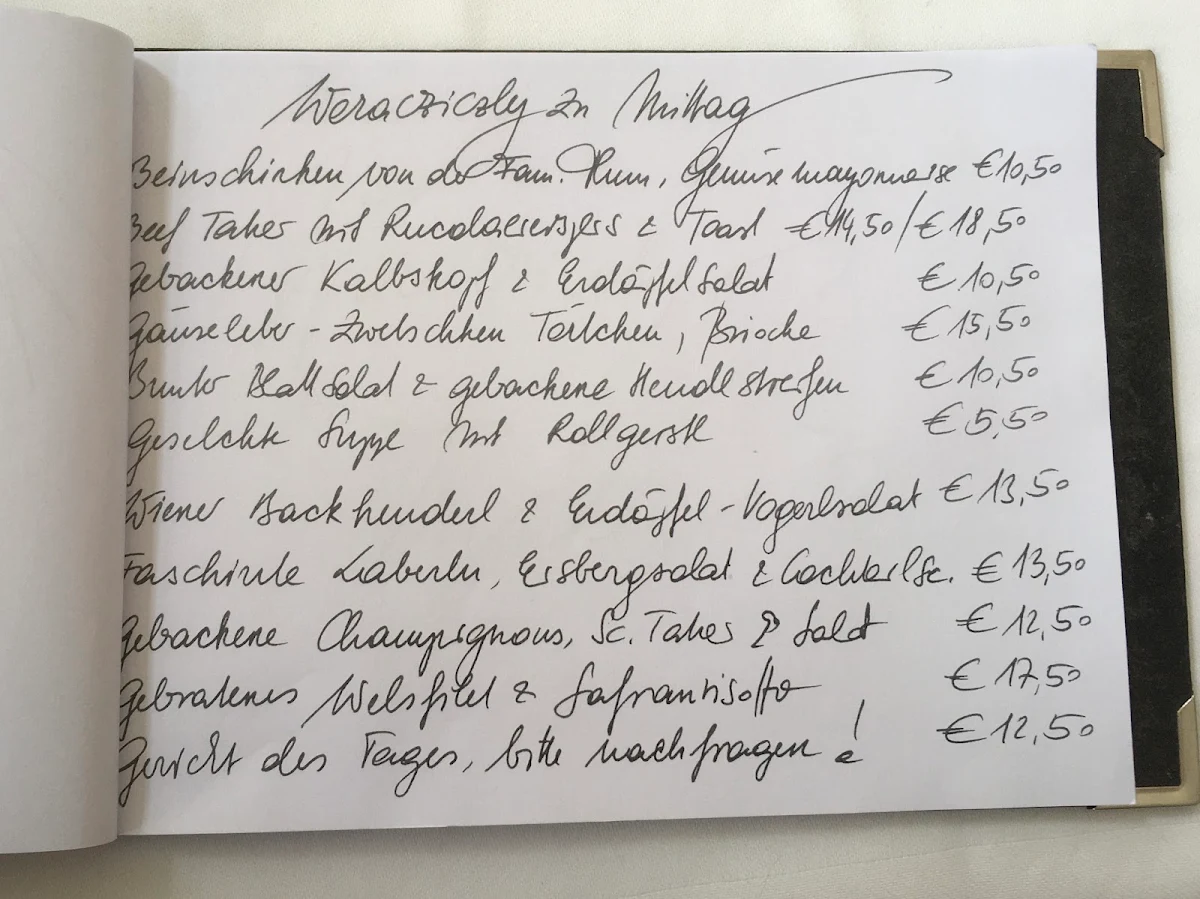 Weracziczky zu Mittag
Beinschinken von der Fam. Thum, Gemüsemayonnaise €10,50
Beef Tatar mit Rucola & Toast €14,50/€18,50
Gebackener Kalbskopf & Erdäpfelsalat €10,50
Gänseleber-Zwetschken Törtchen, Brioche €15,50
Bunter Blattsalat & gebackene Hendlstreifen €10,50
Geselchte Suppe mit Rollgerstl €5,50
Wiener Backhenderl & Erdäpfel-Vogerlsalat €13,50
Faschierte Laberln, Eisbergsalat & Cocktailsc. €13,50
Gebackene Champignons, Sc. Tatar & Salat €12,50
Gebratenes Welsfilet & Safranrisotto €17,50
Gericht des Tages, bitte nachfragen! €12,50